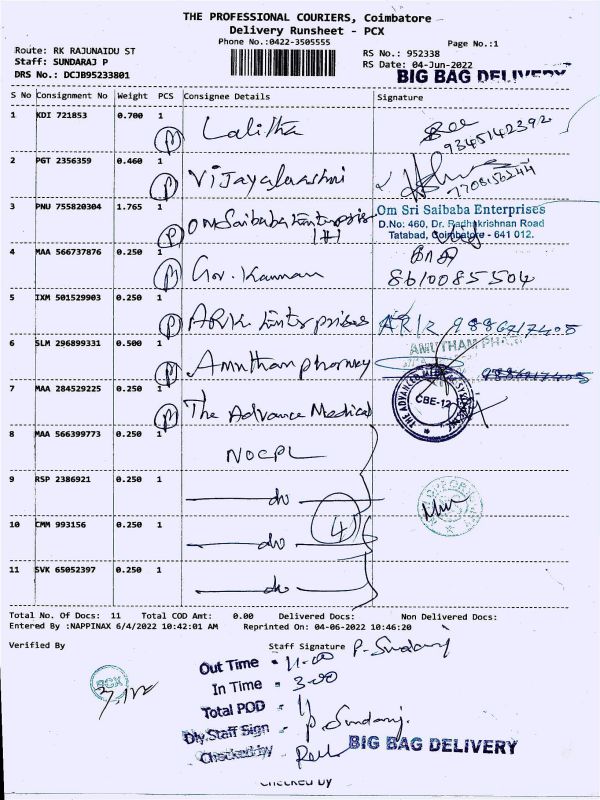 THE PROFESSIONAL COURIERS, Coimbatore
Delivery Runsheet - PCX
Phone No.:0422-3505555
Page No.:1
Route: RK RAJUNAIDU ST
RS No.: 952338
Staff: SUNDARAJ P
RS Date: 04-Jun-2022
DRS No.: DCJB95233801
BIG BAG DELIVERY
S No Consignment No Weight PCS Consignee Details Signature
1 KDI 721853 0.700 1 Lalitha
9345142392
2 PGT 2356359 0.460 1 Vijayalakshmi
7708156244
3 PNU 755820304 1.765 1 Om Saibaba Enterprises
Om Sri Saibaba Enterprises
D.No: 460, Dr. Radhakrishnan Road
Tatabad, Coimbatore - 641 012.
4 MAA 566737876 0.250 1 Gov. Kannan
8610085504
5 IXM 501529903 0.250 1 ARK Enterprises
6 SLM 296899331 0.500 1 Amutham pharmacy
AMUTHAM PHAR
7 MAA 284529225 0.250 1 The Advance Medical
CBE-12
8 MAA 566399773 0.250 1 NOCPL
9 RSP 2386921 0.250 1 do
10 CMM 993156 0.250 1 do
4
11 SVK 65052397 0.250 1 do
Total No. Of Docs: 11 Total COD Amt: 0.00 Delivered Docs: Non Delivered Docs:
Entered By :NAPPINAX 6/4/2022 10:42:01 AM Reprinted On: 04-06-2022 10:46:20
Verified By Staff Signature P. Sundaraj
Out Time - 11-00
In Time - 3-00
PCX
Total POD - 11
Dly.Staff Sign - P. Sundaraj.
Checked by
BIG BAG DELIVERY
Checked by